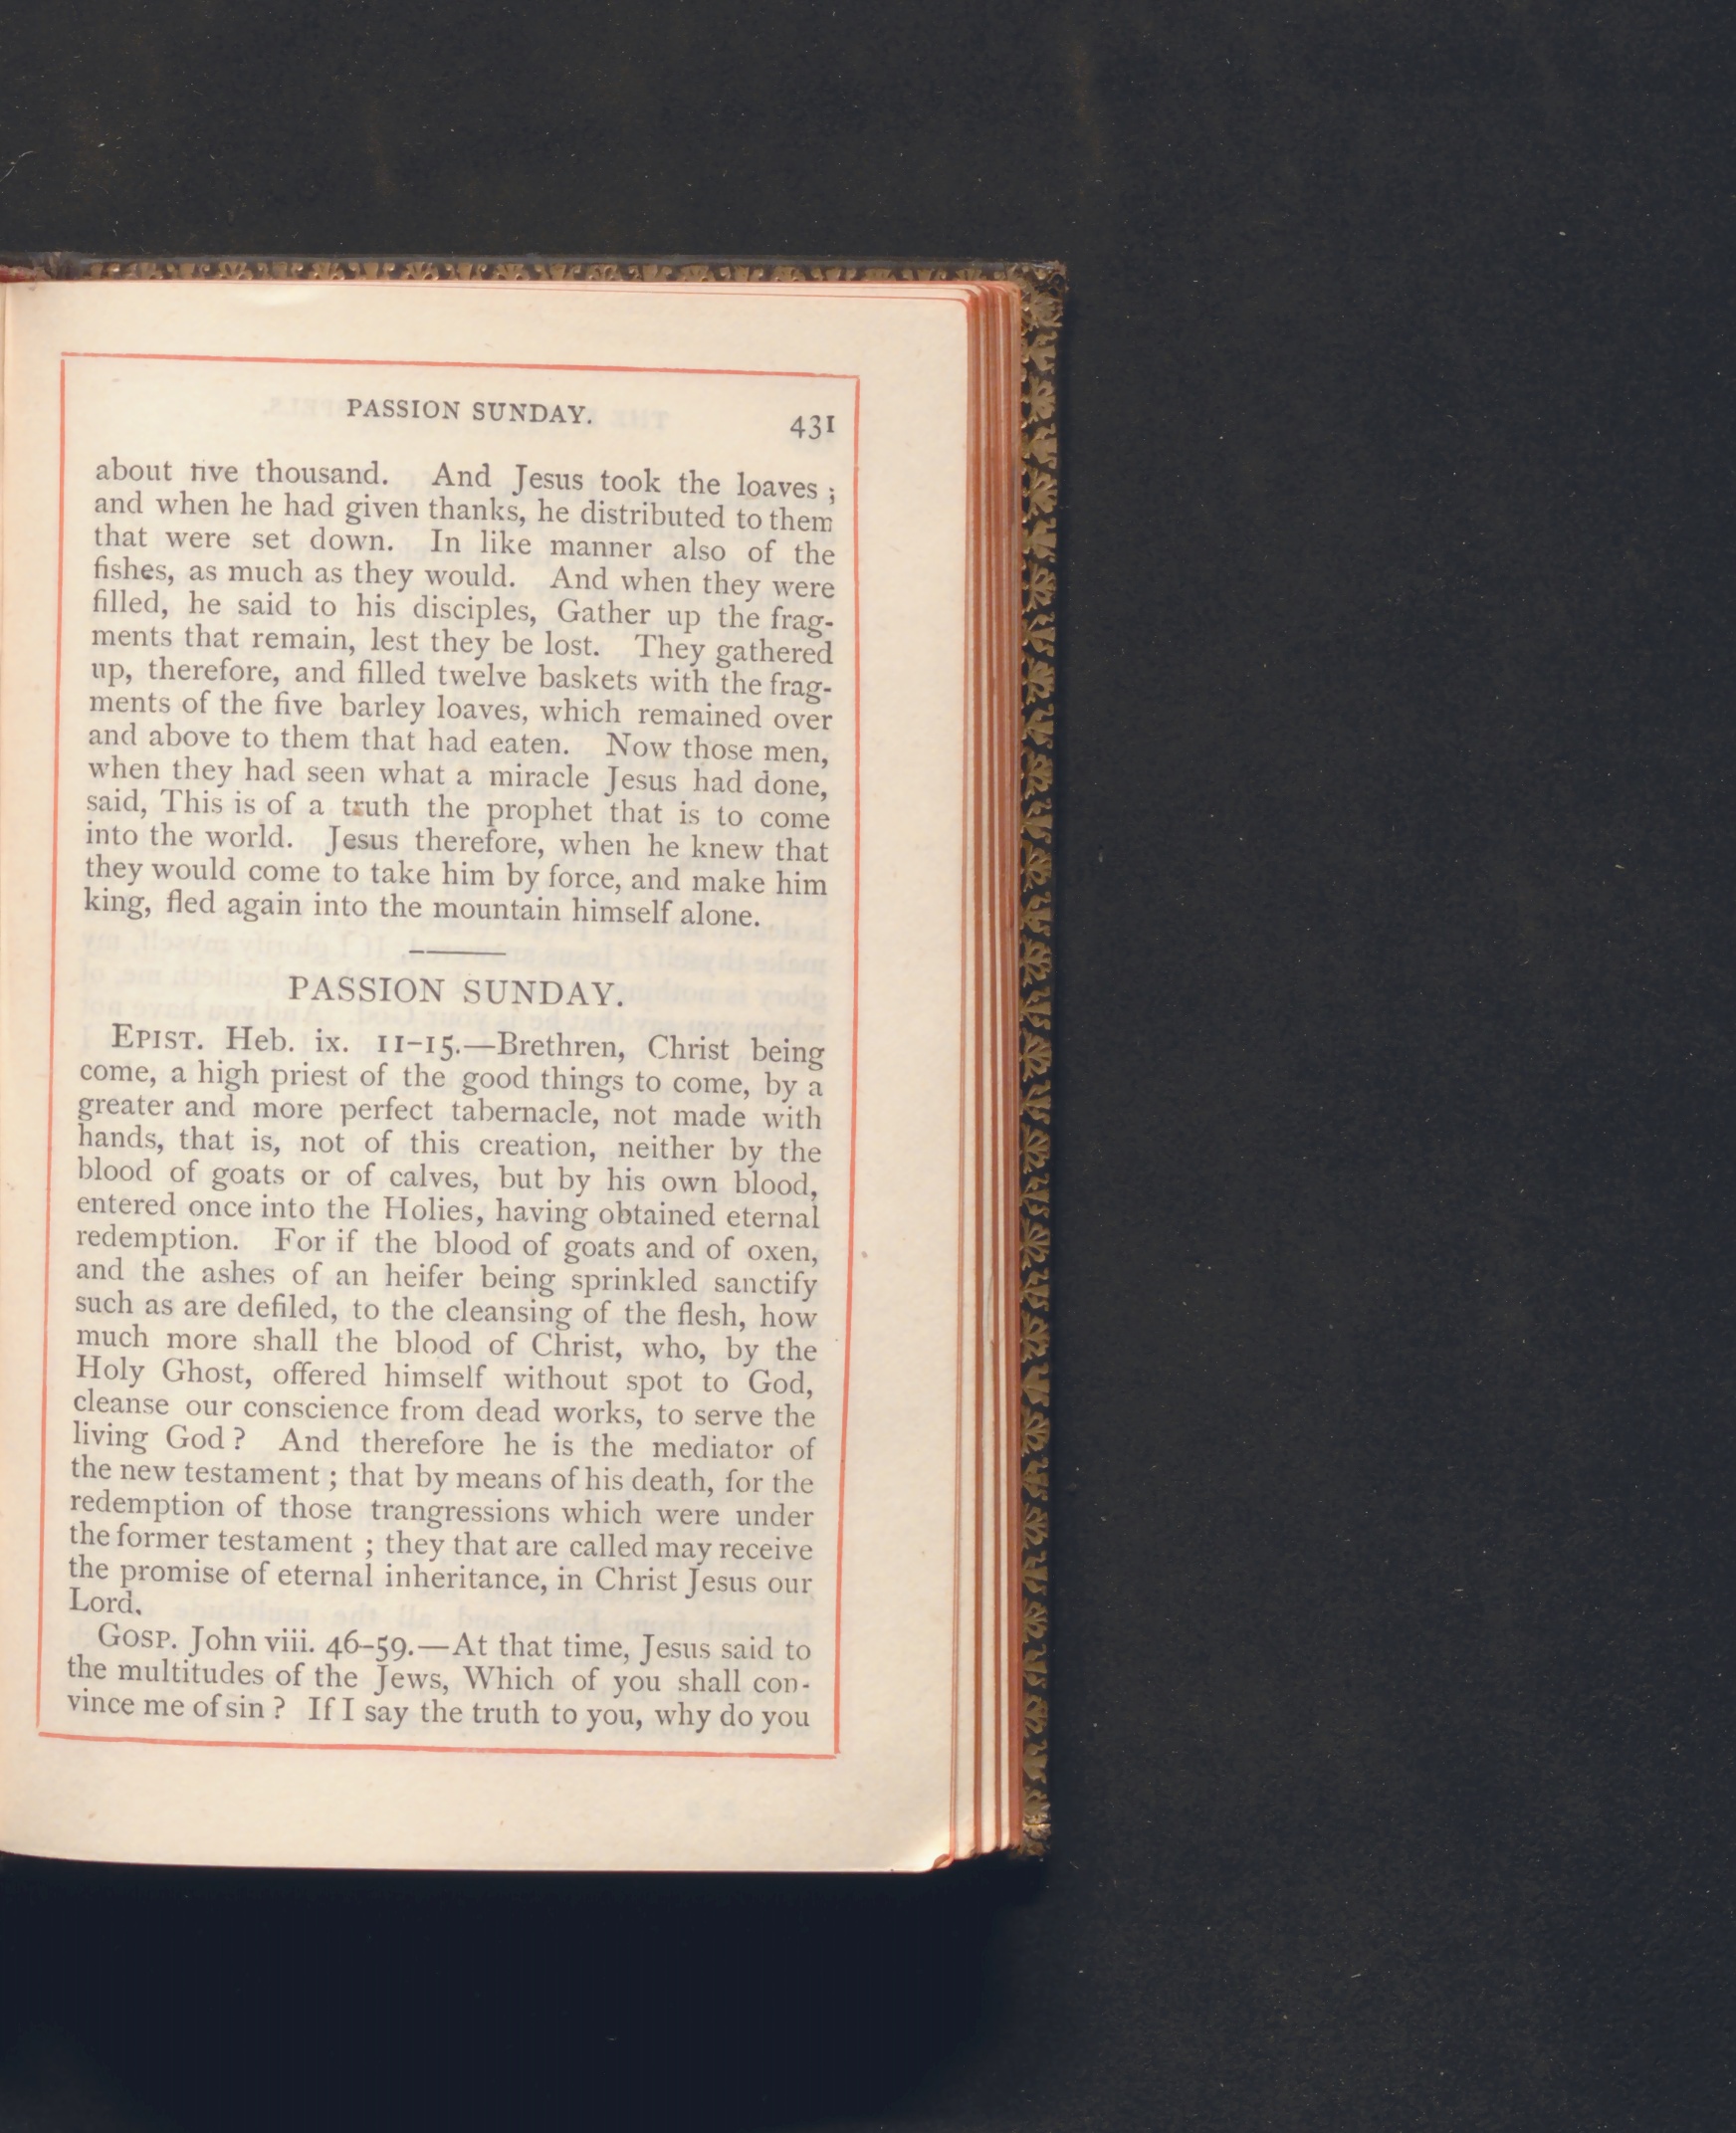 PASSION SUNDAY. 431
about five thousand. And Jesus took the loaves ;
and when he had given thanks, he distributed to them
that were set down. In like manner also of the
fishes, as much as they would. And when they were
filled, he said to his disciples, Gather up the frag-
ments that remain, lest they be lost. They gathered
up, therefore, and filled twelve baskets with the frag-
ments of the five barley loaves, which remained over
and above to them that had eaten. Now those men,
when they had seen what a miracle Jesus had done,
said, This is of a truth the prophet that is to come
into the world. Jesus therefore, when he knew that
they would come to take him by force, and make him
king, fled again into the mountain himself alone.
PASSION SUNDAY.
EPIST. Heb. ix. 11-15.—Brethren, Christ being
come, a high priest of the good things to come, by a
greater and more perfect tabernacle, not made with
hands, that is, not of this creation, neither by the
blood of goats or of calves, but by his own blood,
entered once into the Holies, having obtained eternal
redemption. For if the blood of goats and of oxen,
and the ashes of an heifer being sprinkled sanctify
such as are defiled, to the cleansing of the flesh, how
much more shall the blood of Christ, who, by the
Holy Ghost, offered himself without spot to God,
cleanse our conscience from dead works, to serve the
living God ? And therefore he is the mediator of
the new testament ; that by means of his death, for the
redemption of those trangressions which were under
the former testament ; they that are called may receive
the promise of eternal inheritance, in Christ Jesus our
Lord.
GOSP. John viii. 46-59.—At that time, Jesus said to
the multitudes of the Jews, Which of you shall con-
vince me of sin ? If I say the truth to you, why do you